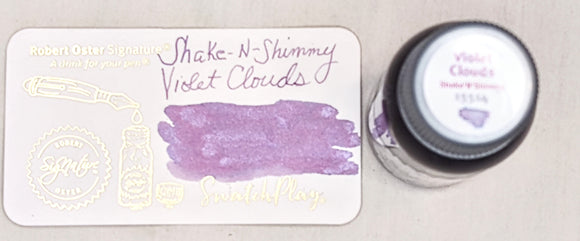 Robert Oster Signature®
A drink for your pen®
Shake-N-Shimmy
Violet Clouds
ROBERT
Signature
OSTER
SwatchPlay
Violet
Clouds
Shake'N'Shimmy